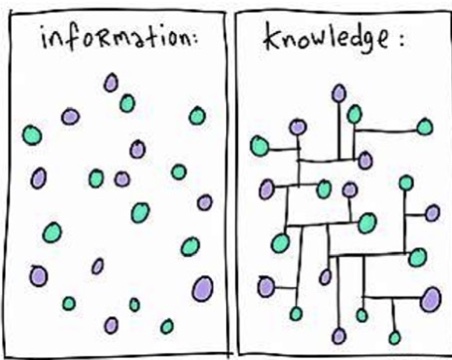 infoRmation:
knowledge: